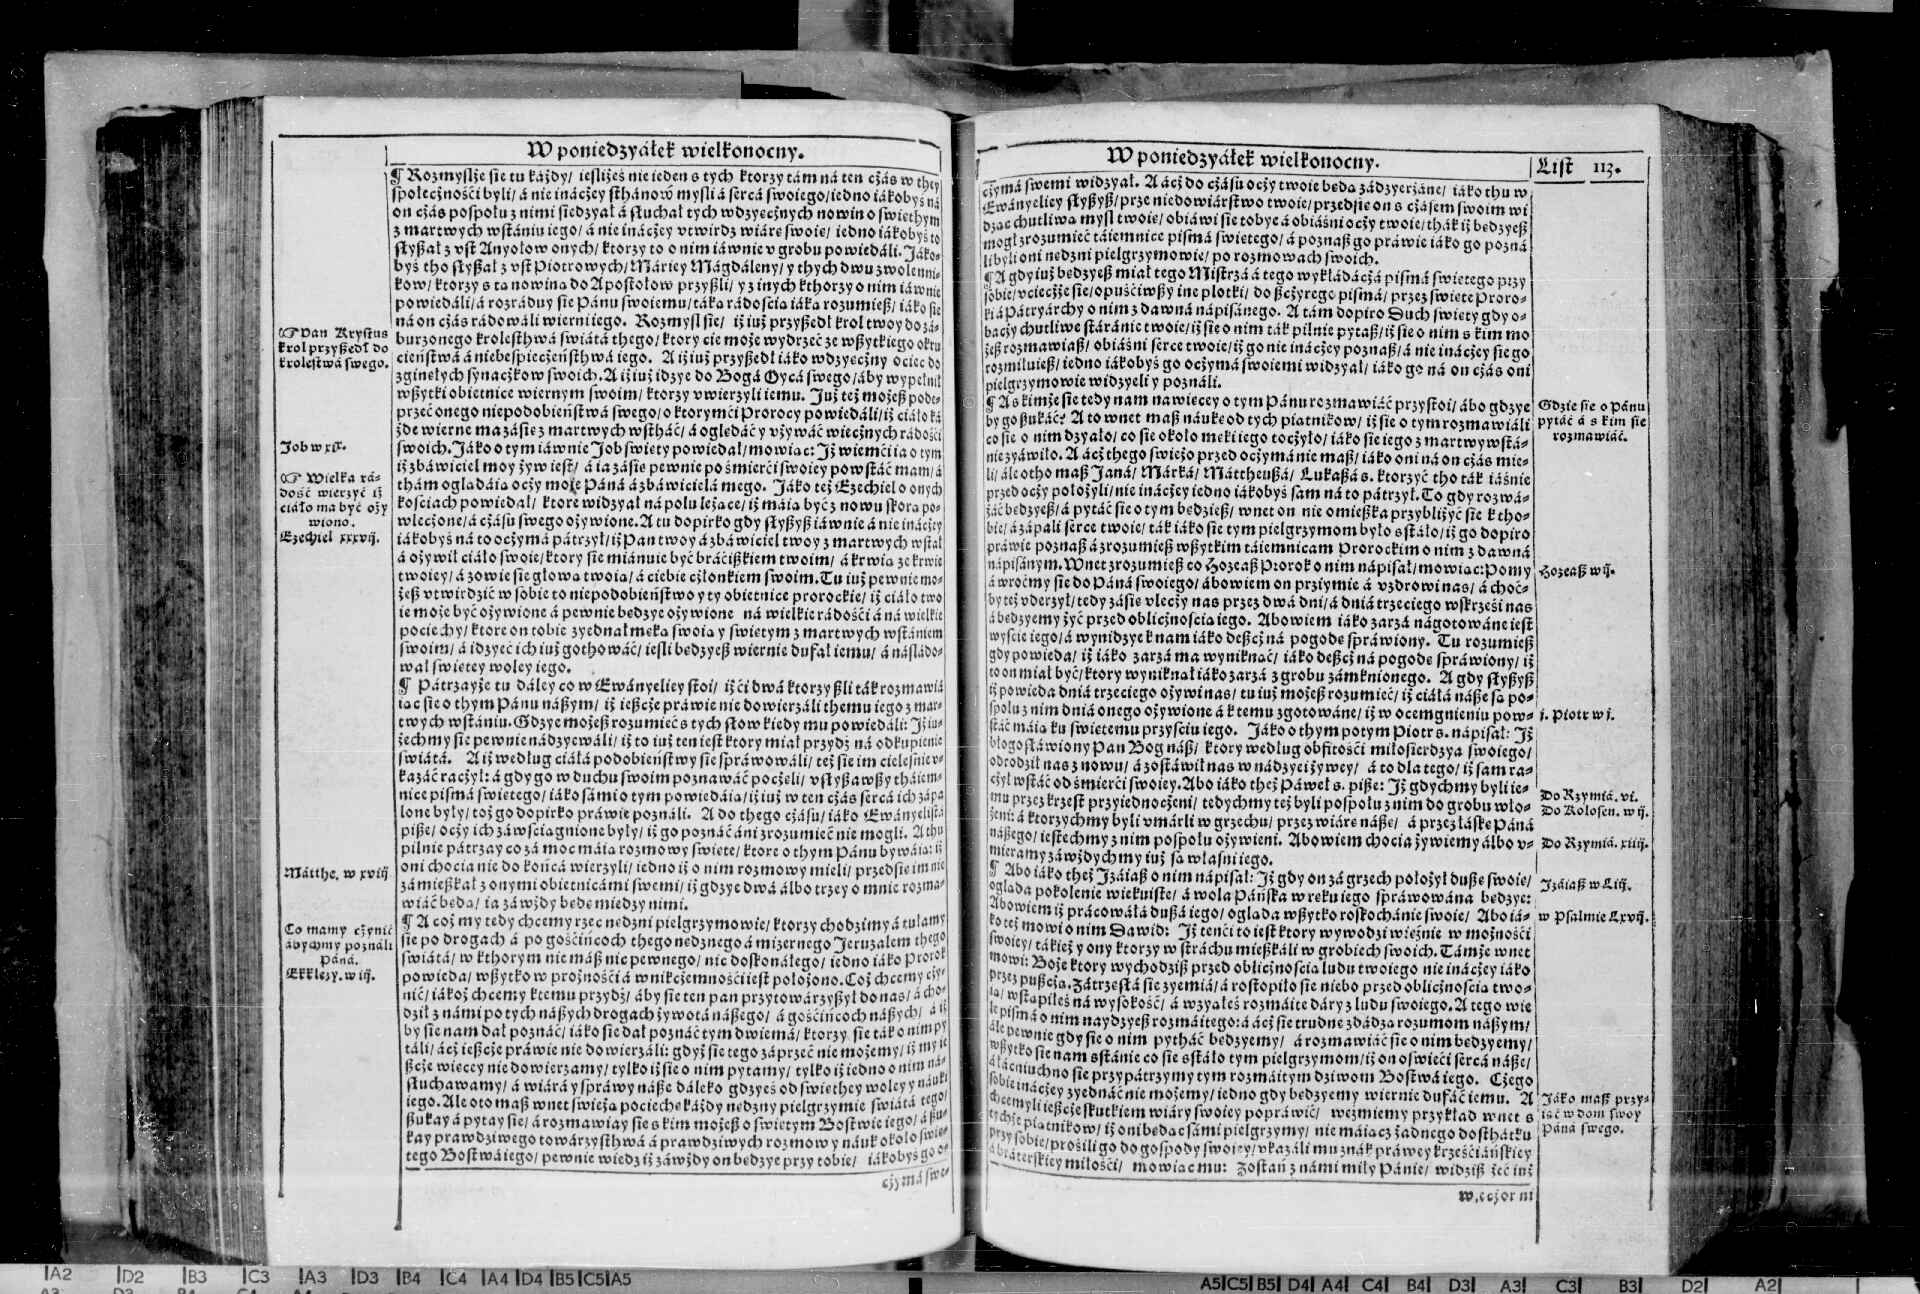 W poniedzyáłek wielkonocny.
¶ Rozmyslże sie tu káżdy/ iesliżeś nie ieden s tych ktorzy tám ná ten cżás w they
społecżnośći byli/ á nie inácżey sthánow mysli á sercá swoiego/ iedno iákobyś ná
on cżás pospołu z nimi siedzyał á słuchał tych wdzyecżnych nowin o swiethym
z martwych wstániu iego/ á nie inácżey vtwirdz wiáre swoie/ iedno iákobyś to
słyßał z vst Anyołow onych/ ktorzy to o nim iáwnie v grobu powiedáli. Jáko-
byś tho słyßał z vst Piotrowych/ Máriey Mágdáleny/ y thych dwu zwolenni-
kow/ ktorzy s tą nowiną do Apostołow przyßli/ y z inych kthorzy o nim iáwnie
powiedáli/ á rozráduy sie Pánu swoiemu/ táką rádoscią iáką rozumieß/ iáko sie
ná on cżás rádowáli wierni iego. Rozmysl sie/ iż iuż przyßedł krol twoy do zá-
burzonego krolesthwá swiátá thego/ ktory cie może wydrzeć ze wßytkiego okru
cieństwá á niebespiecżeństhwá iego. A iż iuż przyßedł iáko wdzyecżny ociec do
zginełych synacżkow swoich. A iż iuż idzye do Bogá Oycá swego/ áby wypełnił
wßytki obietnice wiernym swoim/ ktorzy vwierzyli iemu. Już też możeß pode-
przeć onego niepodobieństwá swego/ o ktorymći Prorocy powiedáli/ iż ciáło ká
żde wierne ma zásie z martwych wstháć/ á oględáć y vżywáć wiecżnych rádośći
swoich. Jáko o tym iáwnie Job swiety powiedał/ mowiąc: Jż wiemći ia o tym
iż zbáwiciel moy żyw iest/ á ia zásie pewnie po śmierći swoiey powstáć mam/ á
thám oglądáią ocży moie Páná á zbáwicielá mego. Jáko też Ezechiel o onych
kosciach powiedał/ ktore widzyał ná polu leżące/ iż máią być z nowu skorą po-
wlecżone/ á cżásu swego ożywione. A tu dopirko gdy słyßyß iáwnie á nie inácżey
iákobyś ná to ocżymá pátrzył/ iż Pan twoy á zbáwiciel twoy z martwych wstał
á ożywił ciáło swoie/ ktory sie miánuie być bráćißkiem twoim/ á krwią ze krwie
twoiey/ á zowie sie głową twoią/ á ciebie cżłonkiem swoim. Tu iuż pewnie mo-
żeß vtwirdzić w sobie to niepodobieństwo y ty obietnice prorockie/ iż ciáło two
ie może być ożywione á pewnie bedzye ożywione ná wielkie rádośći á ná wielkie
pociechy/ ktore on tobie zyednał męką swoią y swietym z martwych wstániem
swoim/ á idzyeć ich iuż gothowáć/ iesli bedzyeß wiernie dufał iemu/ á násládo-
wał swietey woley iego.
¶ Pátrzayże tu dáley co w Ewányeliey stoi/ iżći dwá ktorzy ßli ták rozmawiá
iąc sie o thym Pánu nášym/ iż ießcże práwie nie dowierzáli themu iego z mar-
twych wstániu. Gdzye możeß rozumieć s tych słow kiedy mu powiedáli: Jż iu-
żechmy sie pewnie nádzyewáli/ iż to iuż ten iest ktory miał przydź ná odkupienie
swiátá. A iż według ciáłá podobieństwy sie spráwowáli/ też sie im cieleśnie v-
kazáć racżył: á gdy go w duchu swoim poznawáć pocżeli/ vsłyßawßy tháiem-
nice pismá swietego/ iáko sámi o tym powiedáią/ iż iuż w ten cżás sercá ich zápa
lone były/ toż go dopirko práwie poználi. A do thego cżásu/ iáko Ewányelistá
piße/ ocży ich záwsciągnione były/ iż go poznáć áni zrozumieć nie mogli. A thu
pilnie pátrzay co zá moc máią rozmowy swiete/ ktore o thym Pánu bywáią: iż
oni chocia nie do końcá wierzyli/ iedno iż o nim rozmowy mieli/ przedsie im nie
zámießkał z onymi obietnicámi swemi/ iż gdzye dwá álbo trzey o mnie rozma-
wiáć będą/ ia záwżdy bede miedzy nimi.
¶ A coż my tedy chcemy rzec nedzni pielgrzymowie/ ktorzy chodzimy á tułamy
sie po drogach á po gośćińcoch thego nedznego á mizernego Jeruzalem thego
swiátá/ w kthorym niemáß nic pewnego/ nic doskonáłego/ iedno iáko Prorok
powieda/ wßytko w prożnośći á w nikcżemnośći iest położono. Coż chcemy cży-
nić/ iákoż chcemy k temu przydź/ áby sie ten pan przytowárzyßył do nas/ á cho-
dził z námi po tych náßych drogach żywotá náßego/ á gośćińcoch náßych/ á iż
by sie nam dał poznáć/ iáko sie dał poznáć tym dwiemá/ ktorzy sie ták o nim py
táli/ ácż ießcże práwie nie dowierzáli: gdyż sie tego záprzeć nie możemy/ iż my ie
ßcże wiecey nie dowierzamy/ tylko iż sie o nim pytamy/ tylko iż iedno o nim ná-
słuchawamy/ á wiárá y spráwy náße dáleko gdzyeś od swiethey woley y náuki
iego. Ale oto maß wnet swieżą pociechę káżdy nedzny pielgrzymie swiátá tego/
ßukay á pytay sie/ á rozmawiay sie s kim możeß o swietym Bostwie iego/ á ßu-
kay prawdziwego towárzysthwá á prawdziwych rozmow y náuk około swie-
tego Bostwá iego/ pewnie wiedz iż záwżdy on bedzye przy tobie/ iákobyś go o-
cżymá swe-
☞ Pan Krystus
krol przyßedł do
krolestwá swego.
Job w xix.
☞ Wielka rá-
dość wierzyć iż
ciáło ma być oży
wiono.
Ezechiel xxxvij.
Mátthe. w xviij.
Co mamy cżynić
ábychmy poználi
Páná.
Ekklezy. w ij.
W poniedzyáłek wielkonocny.
List 113.
cżymá swemi widzyał. A ácż do cżásu ocży twoie będą zádzyerżáne/ iáko thu w
Ewányeliey słyßyß/ prze niedowiárstwo twoie/ przedsie on s cżásem swoim wi
dząc chutliwą mysl twoie/ obiáwi sie tobye á obiáśni ocży twoie/ ták iż bedzyeß
mogł zrozumieć táiemnice pismá swietego/ á poznaß go práwie iáko go pozná
li byli oni nedzni pielgrzymowie/ po rozmowach swoich.
¶ A gdy iuż bedzyeß miał tego Mistrzá á tego wykłádácżá pismá swietego przy
sobie/ vciecżże sie/ opuśćiwßy ine plotki/ do ßcżyrego pismá/ przez swiete Proro-
ki á Pátryárchy o nim z dawná nápisánego. A tám dopiro Duch swiety gdy o-
bacży chutliwe stáránie twoie/ iż sie o nim ták pilnie pytaß/ iż sie o nim s kim mo
żeß rozmawiaß/ obiáśni serce twoie/ iż go nie inácżey poznaß/ á nie inácżey sie go
rozmiłuieß/ iedno iákobyś go ocżymá swoiemi widzyał/ iáko go ná on cżás oni
pielgrzymowie widzyeli y poználi.
¶ A s kimże sie tedy nam nawiecey o tym Pánu rozmawiáć przystoi/ ábo gdzye
by go ßukáć? A to wnet maß náukę od tych piątnikow/ iż sie o tym rozmawiáli
co sie o nim dzyało/ co sie około męki iego tocżyło/ iáko sie iego z martwy wstá-
nie zyáwiło. A ácż thego swieżo przed ocżymá nie maß/ iáko oni ná on cżás mie-
li/ ále otho maß Janá/ Márká/ Máttheußá/ Lukaßá s. ktorzyć tho ták iáśnie
przed ocży położyli/ nie inácżey iedno iákobyś sam ná to pátrzył. To gdy rozwá-
żáć bedzyeß/ á pytáć sie o tym bedzieß/ wnet on nie omießka przybliżyć sie k tho-
bie/ á zápali serce twoie/ ták iáko sie tym pielgrzymom było sstáło/ iż go dopiro
práwie poznaß á zrozumieß wßytkim táiemnicam Prorockim o nim z dawná
nápisánym. Wnet zrozumieß co Hozeaß Prorok o nim nápisał/ mowiąc: Pomy
á wroćmy sie do Páná swoiego/ ábowiem on przyimie á vzdrowi nas/ á choć-
by też vderzył/ tedy zásie vlecży nas przez dwá dni/ á dniá trzeciego wskrześi nas
á bedzyemy żyć przed oblicżnoscią iego. Abowiem iáko zarzá nágotowáne iest
wyście iego/ á wynidzye k nam iáko deßcż ná pogodę spráwiony. Tu rozumieß
gdy powieda/ iż iáko zarzá ma wyniknąć/ iáko deßcż ná pogodę spráwiony/ iż
to on miał być/ ktory wyniknął iáko zarzá z grobu zámknionego. A gdy słyßyß
iż powieda dniá trzeciego ożywi nas/ tu iuż możeß rozumieć/ iż ciáłá náße są po-
społu z nim dniá onego ożywione á k temu zgotowáne/ iż w ocemgnieniu pow-
stáć máią ku swietemu przyściu iego. Jáko o thym potym Piotr s. nápisał: Jż
błogosłáwiony Pan Bog náß/ ktory według obfitośći miłosierdzya swoiego/
odrodził nas z nowu/ á zostáwił nas w nádzyei żywey/ á to dla tego/ iż sam rá-
cżył wstáć od śmierći swoiey. Abo iáko też Páweł s. piße: Jż gdychmy byli ie-
mu przez krzest przyiednocżeni/ tedychmy też byli pospołu z nim do grobu wło-
żeni: á ktorzychmy byli vmárli w grzechu/ przez wiáre náße/ á przez łáskę Páná
náßego/ iestechmy z nim pospołu ożywieni. Abowiem chocia żywiemy álbo v-
mieramy záwżdychmy iuż są własni iego.
¶ Abo iáko też Jzáiaß o nim nápisał: Jż gdy on zá grzech położył dußę swoie/
ogląda pokolenie wiekuiste/ á wola Páńska w ręku iego spráwowaná bedzye:
Abowiem iż prácowáłá dußá iego/ ogląda wßytko roskochánie swoie/ Abo iá-
ko też mowi o nim Dawid: Jż tenći to iest ktory wywodzi wieźnie w możnośći
swoiey/ tákież y ony ktorzy w stráchu mießkáli w grobiech swoich. Támże wnet
mowi: Boże ktory wychodziß przed oblicżnoscią ludu twoiego nie inácżey iáko
przez pußcżą. Zátrzęsłá sie zyemiá/ á rostopiło sie niebo przed oblicżnoscią two-
ią/ wstąpiłeś ná wysokość/ á wzyąłeś rozmáite dáry z ludu swoiego. A tego wie
le pismá o nim naydzyeß rozmáitego: á ácż sie trudne zdádzą rozumom náßym/
ále pewnie gdy sie o nim pytháć bedzyemy/ á rozmawiáć sie o nim bedzyemy/
wßytko sie nam sstánie co sie sstáło tym pielgrzymom/ iż on oświeći sercá náße/
á łácniuchno sie przypátrzymy tym rozmáitym dziwom Bostwá iego. Cżego
sobie inácżey zyednáć nie możemy/ iedno gdy bedzyemy wiernie dufáć iemu. A
chcemyli ießcże skutkiem wiáry swoiey popráwić/ weźmiemy przykład wnet s
tychże piątnikow/ iż oni bedąc sámi pielgrzymy/ nie máiącz żadnego dosthátku
przy sobie/ prośili go do gospody swoiey/ vkazáli mu znák práwey krześćiáńskiey
á bráterskiey miłośći/ mowiąc mu: Zostáń z námi miły Pánie/ widziß żeć iuż
w,ecżor ni
Gdzie sie o Pánu
pytáć á s kim sie
rozmawiáć.
Hozeaß w ij.
j. Piotr w j.
Do Rzymiá. vi.
Do Kolosen. w ij.
Do Rzymiá. xiiij.
Jzáiaß w Liij.
w Psalmie Lxvij.
Jáko maß przy-
iąć w dom swoy
Páná swego.